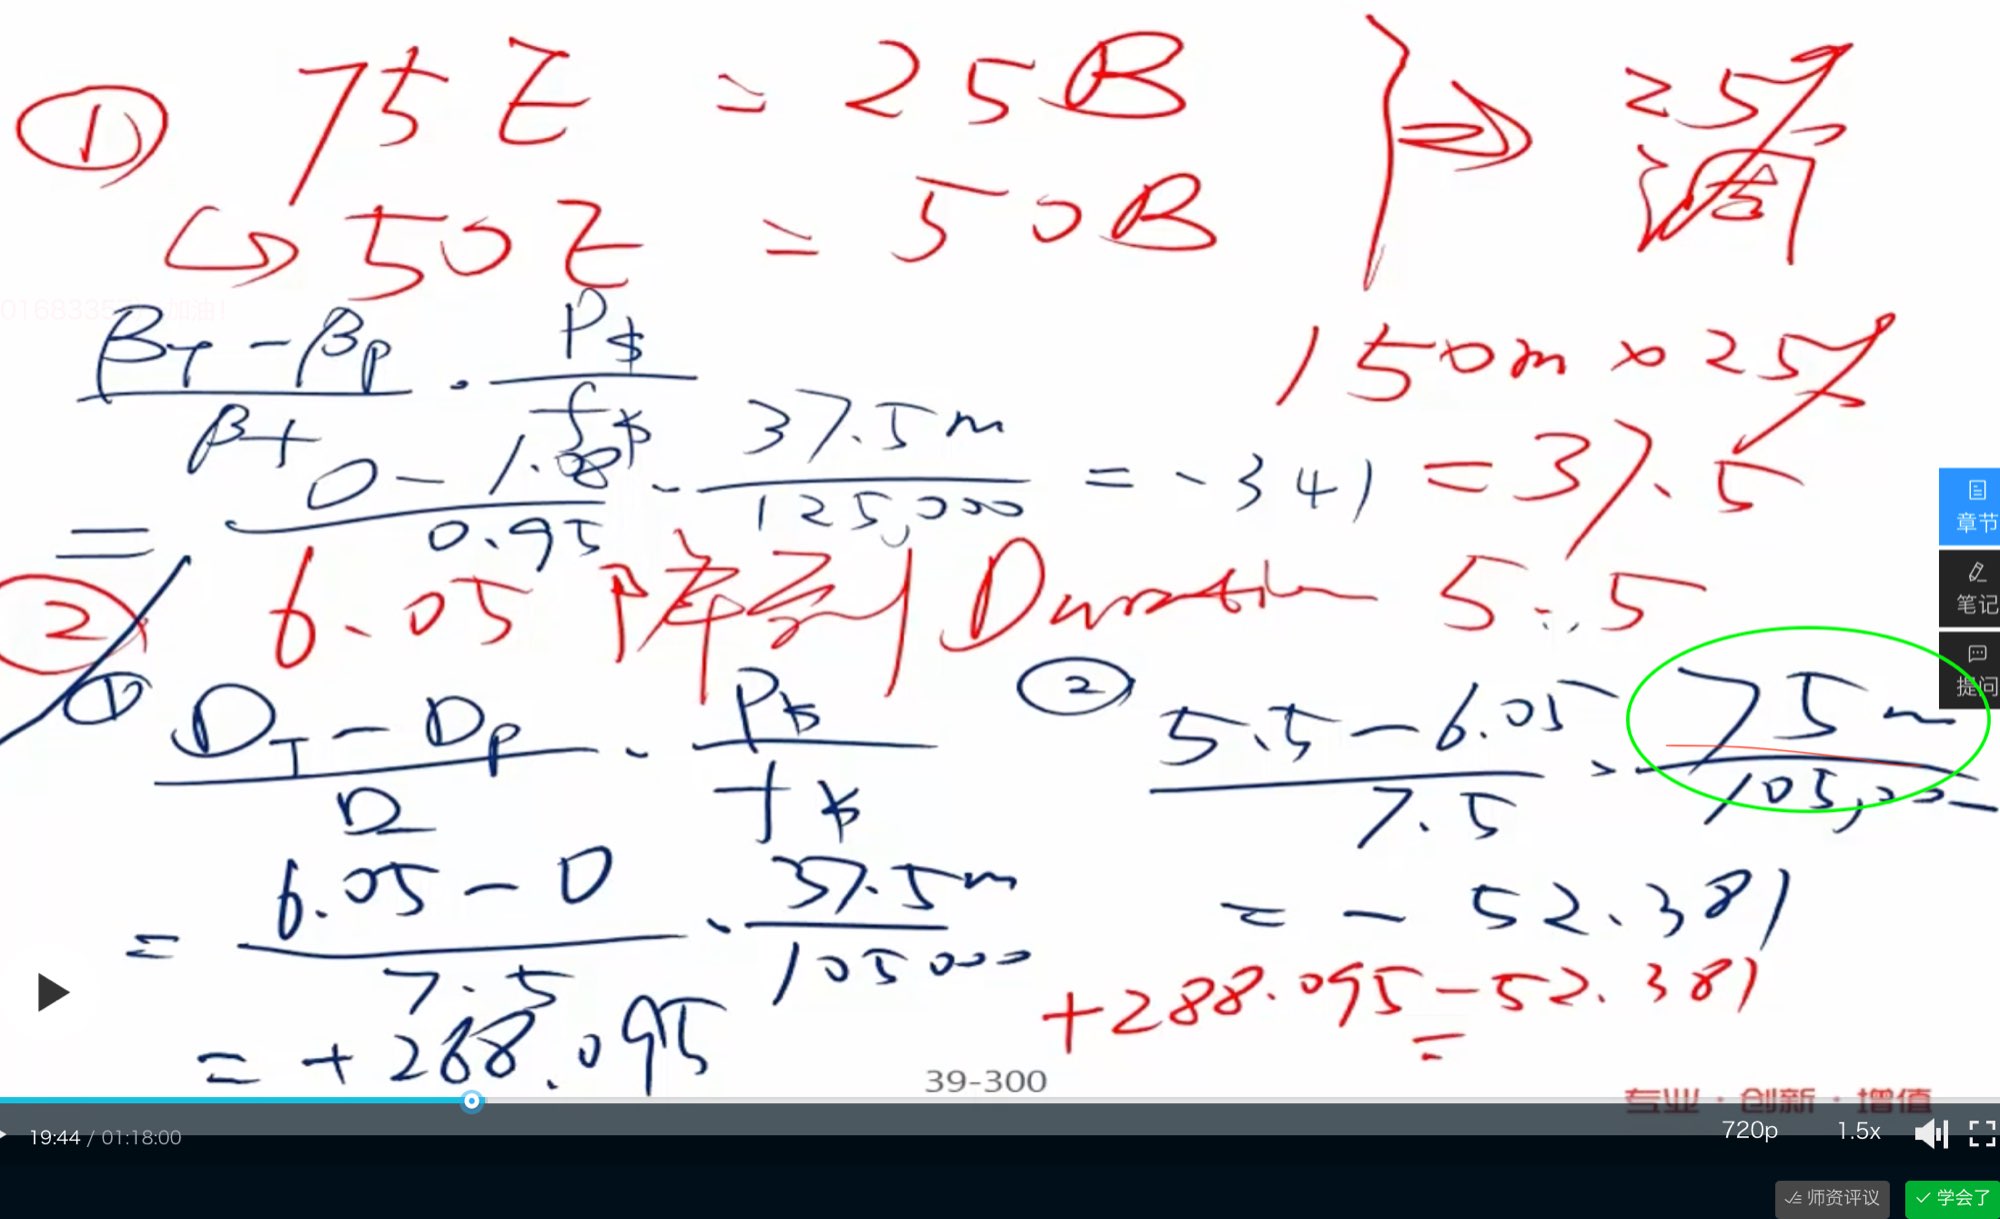 ① 75E = 25B
↳ 50E = 50B
} ⇒ 25%
150m × 25%
= 37.5
βT - βp / βf · P$ / f$
= 0 - 1.08 / 0.95 · 37.5m / 125,000 = -341
② 6.05 降到 Duration 5.5
① DT - Dp / D · P$ / f$
= 6.05 - 0 / 7.5 · 37.5m / 105000
= +288.095
② 5.5 - 6.05 / 7.5 · 75m / 105,000
= - 52.381
+288.095 - 52.381
=
39-300
专业·创新·增值
章节
笔记
提问
19:44 / 01:18:00
720p
1.5x
师资评议
学会了